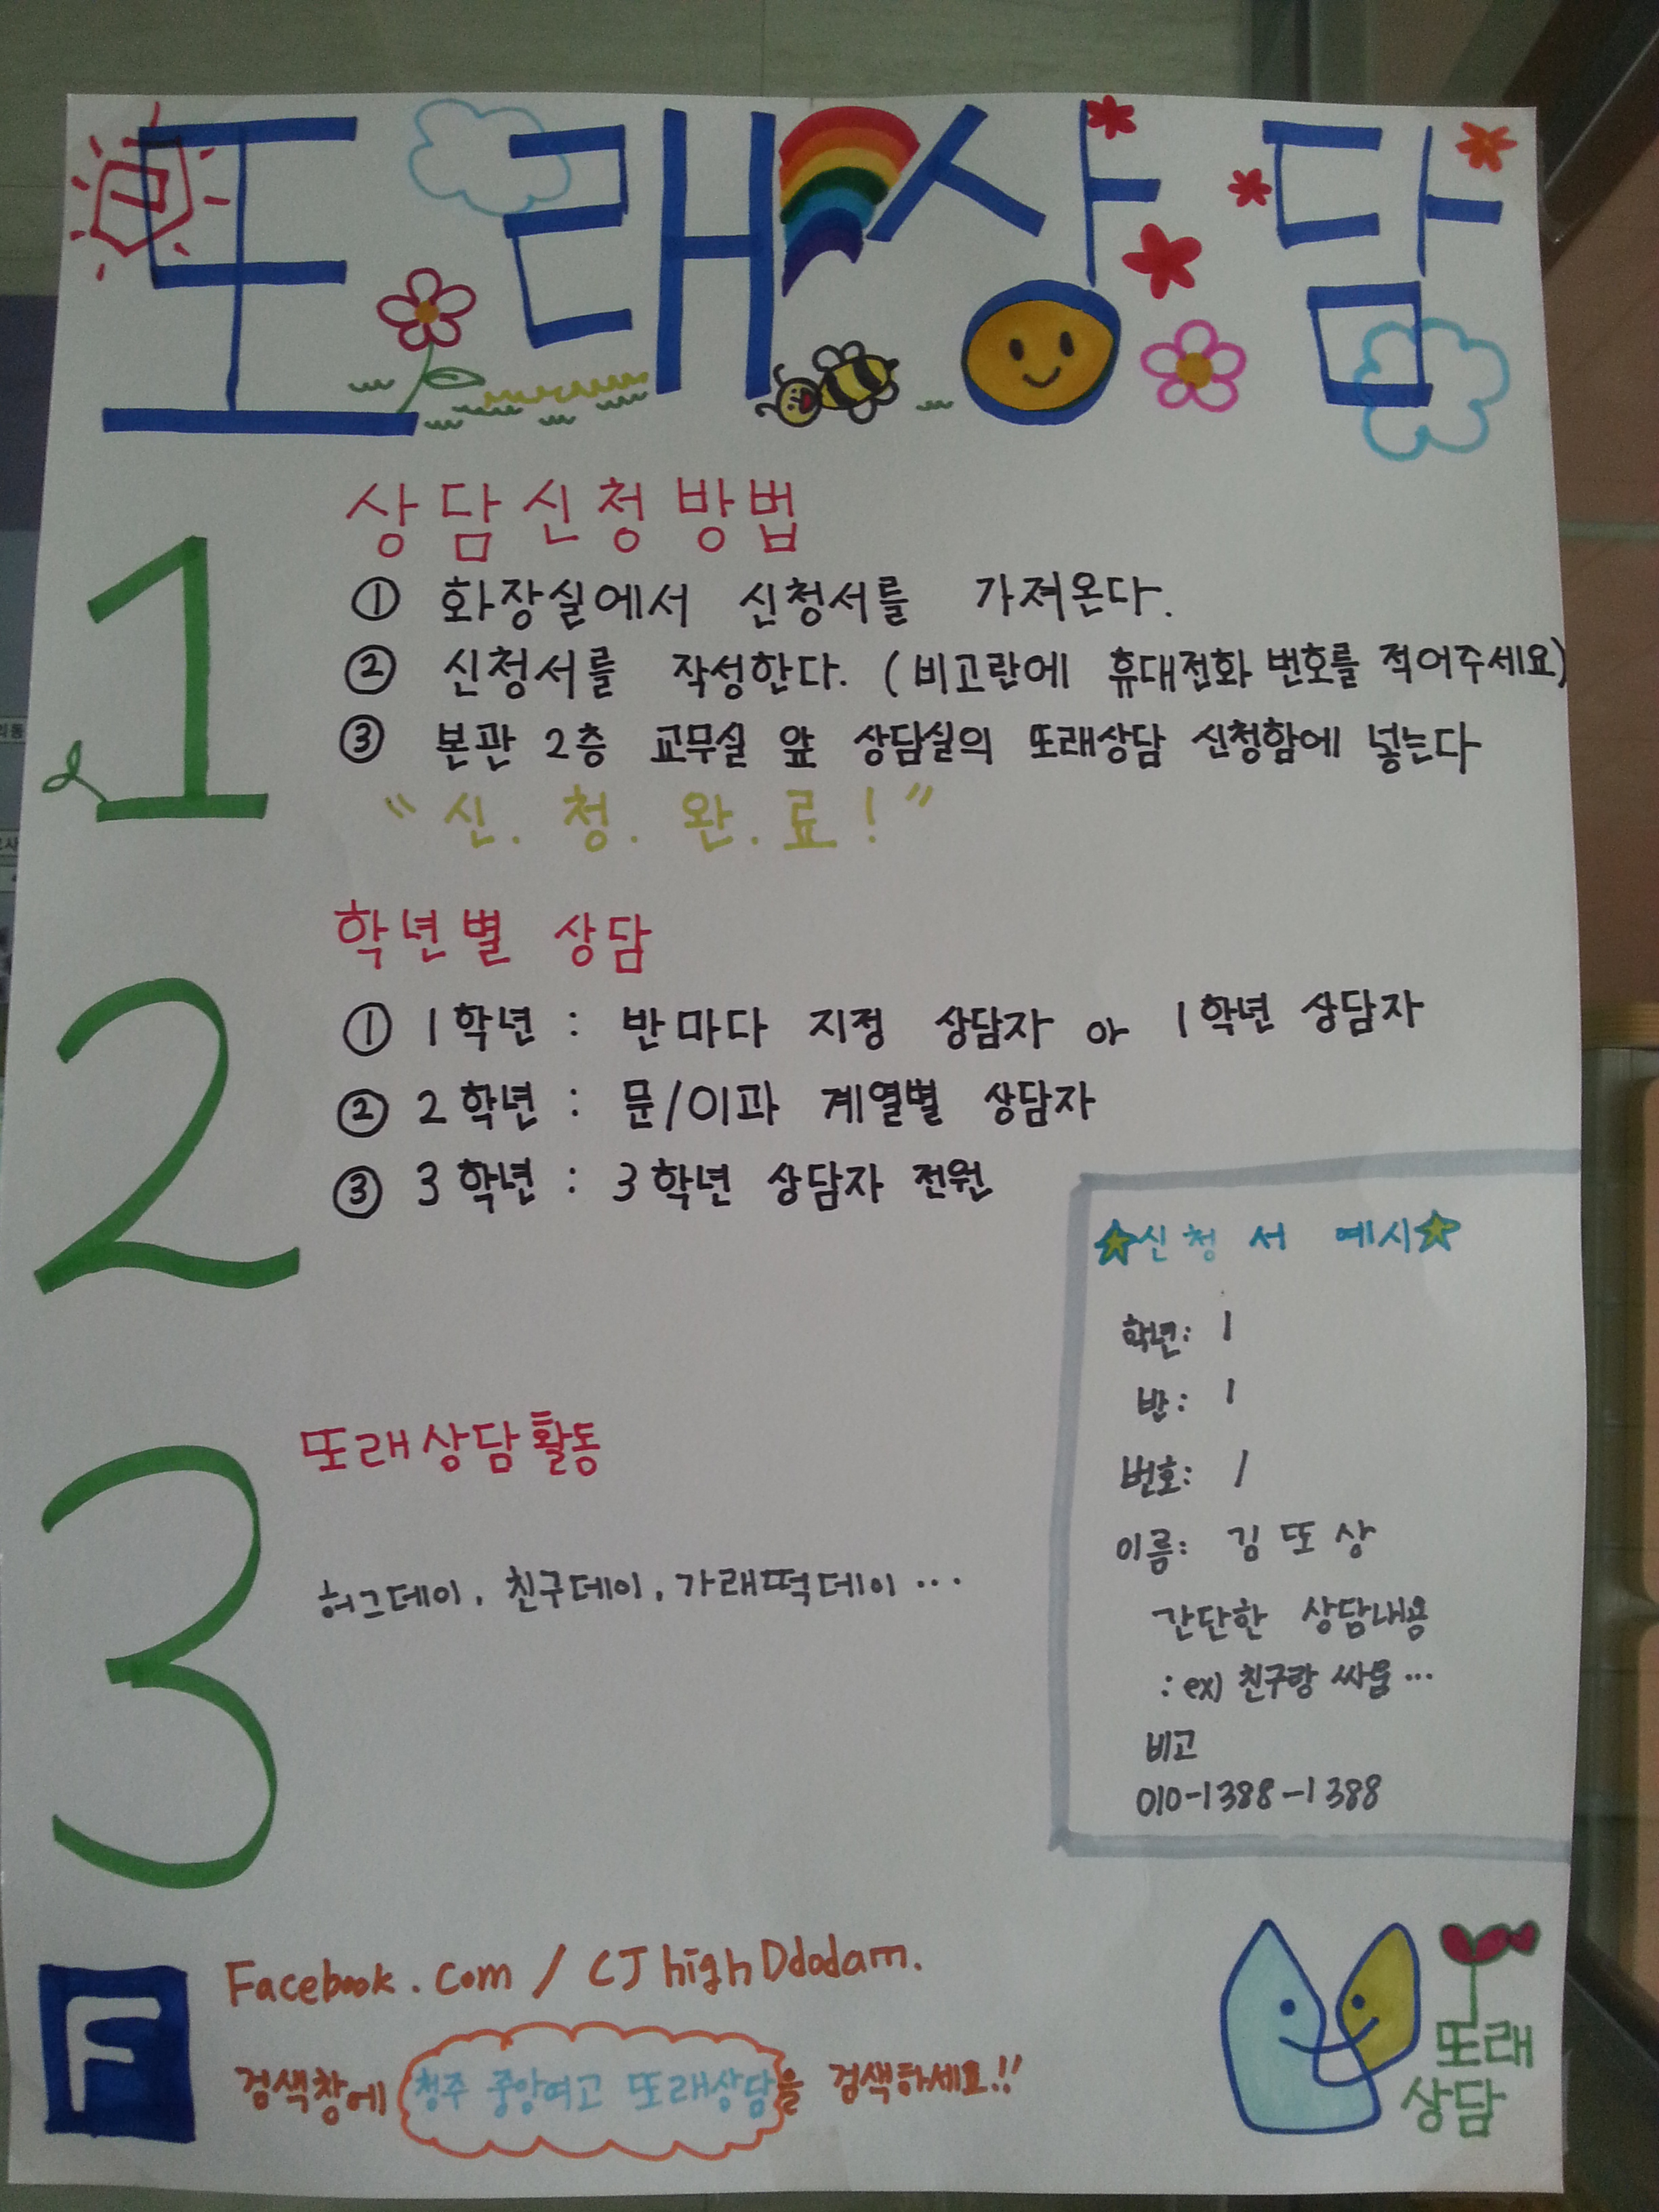 또래상담
1
상담신청방법
① 화장실에서 신청서를 가져온다.
② 신청서를 작성한다. (비고란에 휴대전화 번호를 적어주세요)
③ 본관 2층 교무실 앞 상담실의 또래상담 신청함에 넣는다
"신. 청. 완. 료!"
2
학년별 상담
① 1학년 : 반마다 지정 상담자 or 1학년 상담자
② 2학년 : 문/이과 계열별 상담자
③ 3학년 : 3학년 상담자 전원
3
또래상담활동
허그데이, 친구데이, 가래떡데이 ...
☆신청서 예시☆
학년: 1
반: 1
번호: 1
이름: 김또상
간단한 상담내용
: ex) 친구랑 싸움...
비고
010-1388-1388
F
Facebook.com / CJhighDdodam.
검색창에 청주 중앙여고 또래상담을 검색하세요!!
또래
상담